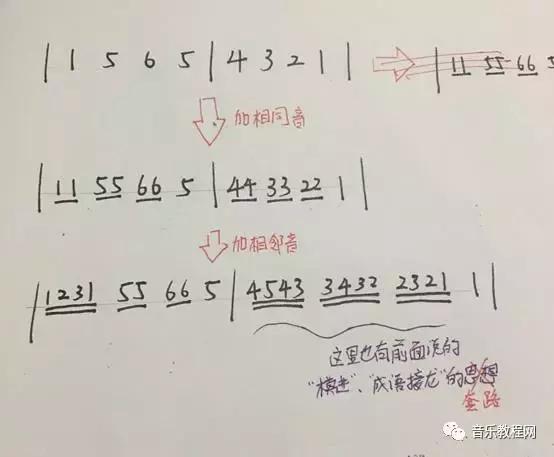 | 1 5 6 5 | 4 3 2 1 | | 11 55 66 5
加相同音
| 11 55 66 5 | 44 33 22 1 |
加相邻音
| 1231 55 66 5 | 4543 3432 2321 1 |
这里也有前面说的
"模进"、"成语接龙"的思想
套路
音乐教程网